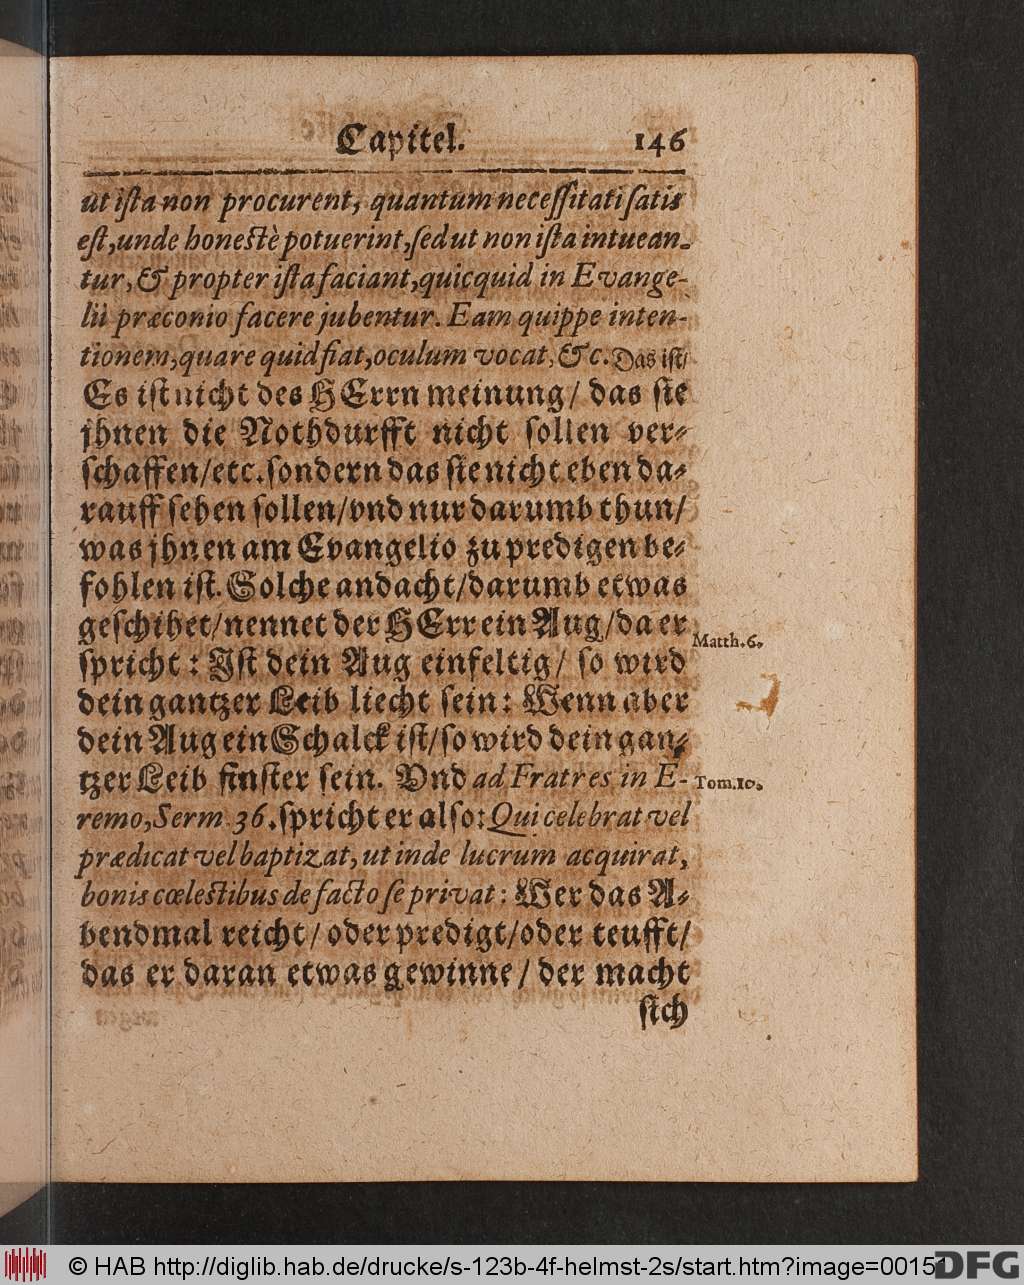 Capitel. 146
ut iſta non procurent, quantum neceſſitati ſatis
eſt, unde honeſtè potuerint, ſed ut non iſta intuean-
tur, & propter iſta faciant, quicquid in Evange-
lii præconio facere jubentur. Eam quippe inten-
tionem, quare quid fiat, oculum vocat, &c. Das iſt/
Es iſt nicht des HErrn meinung/ das ſie
jhnen die Nothdurfft nicht ſollen ver-
ſchaffen/etc. ſondern das ſie nicht eben da-
rauff ſehen ſollen/vnd nur darumb thun/
was jhnen am Evangelio zu predigen be-
fohlen iſt. Solche andacht/darumb etwas
geſchihet/nennet der HErr ein Aug/da er
Matth. 6.
ſpricht: Iſt dein Aug einfeltig/ ſo wird
dein gantzer Leib liecht ſein: Wenn aber
dein Aug ein Schalck iſt/ſo wird dein gan-
tzer Leib finſter ſein. Vnd ad Fratres in E-
Tom. 10.
remo, Serm. 36. ſpricht er alſo: Qui celebrat vel
prædicat vel baptizat, ut inde lucrum acquirat,
bonis cœleſtibus de facto ſe privat: Wer das A-
bendmal reicht/ oder predigt/oder teufft/
das er daran etwas gewinne/ der macht
ſich
© HAB http://diglib.hab.de/drucke/s-123b-4f-helmst-2s/start.htm?image=0015
DFG